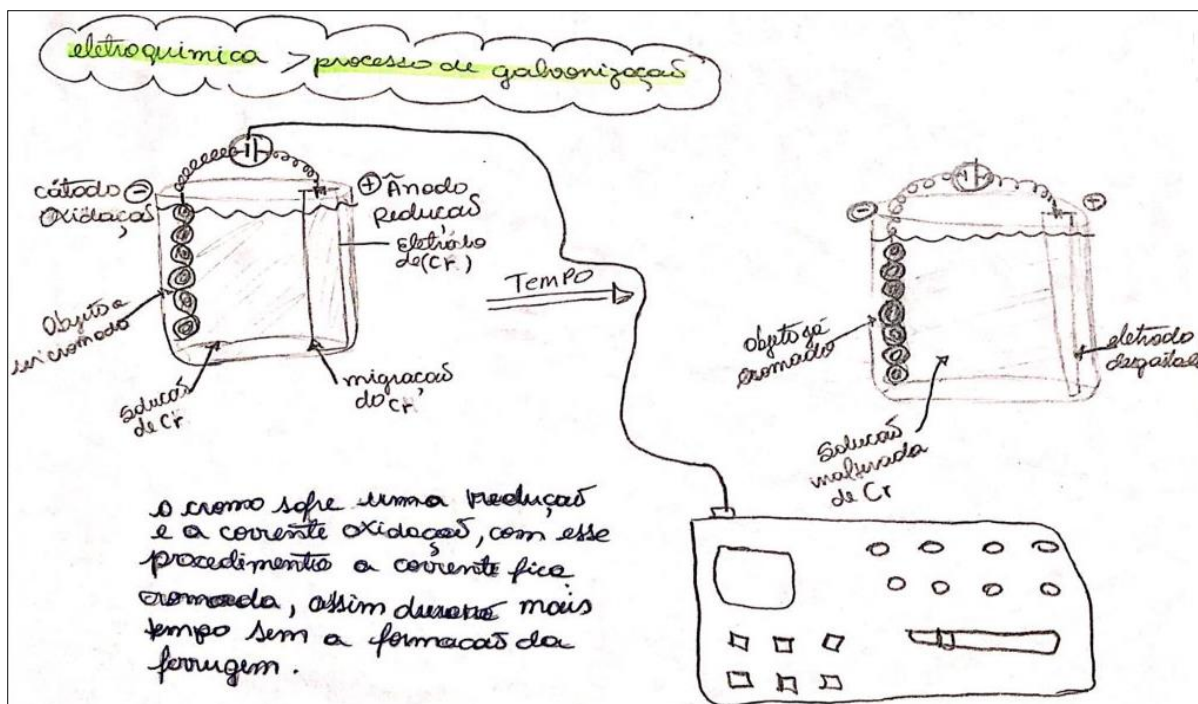 eletroquimica > processo de galvonização
cátodo ⊖
oxidação
⊕ Ânodo
Redução
eletrodo
de (Cr)
Objeto a
ser cromado
Solução
de Cr
migração
do Cr
TEMPO
⊖
⊕
objeto já
cromado
eletrodo
desgastado
Solução
inalterada
de Cr
o cromo sofre uma redução
e a corrente oxidação, com esse
procedimento a corrente fica
cromada, assim durará mais
tempo sem a formação da
ferrugem.